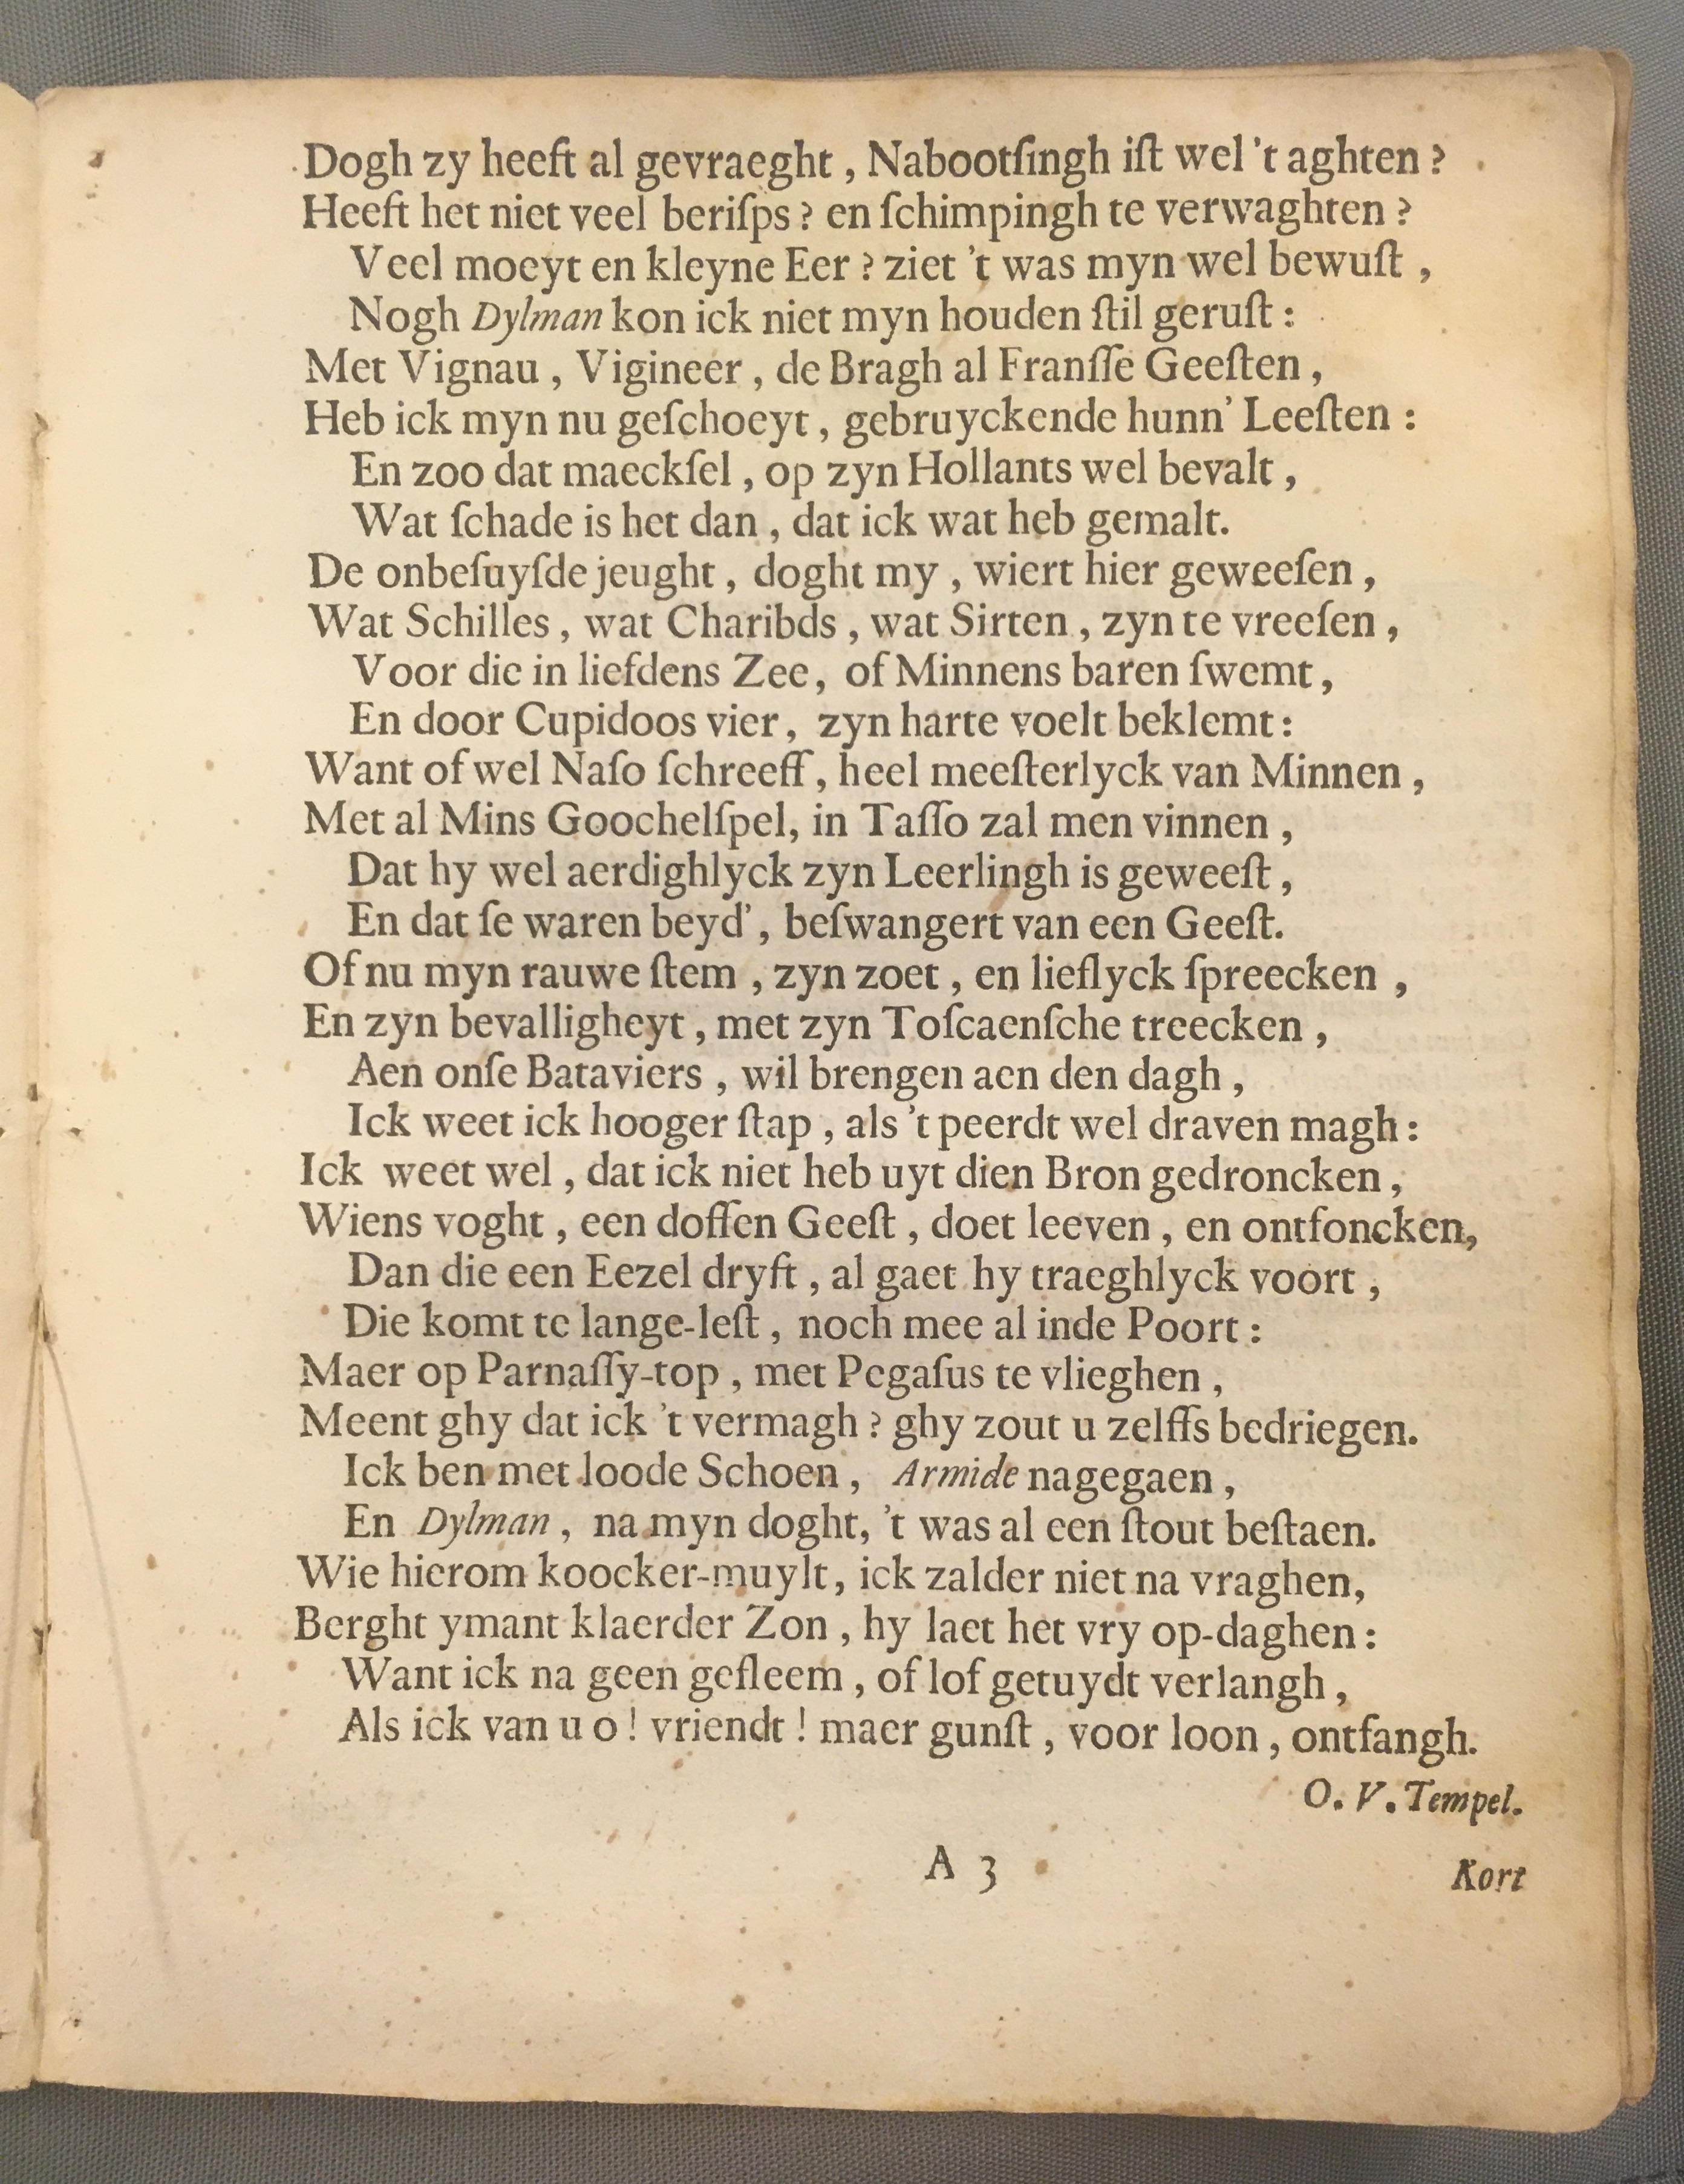 Dogh zy heeft al gevraeght , Nabootſingh iſt wel 't aghten ?
Heeft het niet veel beriſps ? en ſchimpingh te verwaghten ?
Veel moeyt en kleyne Eer ? ziet 't was myn wel bewuſt ,
Nogh Dylman kon ick niet myn houden ſtil geruſt :
Met Vignau , Vigineer , de Bragh al Franſſe Geeſten ,
Heb ick myn nu geſchoeyt , gebruyckende hunn' Leeſten :
En zoo dat maeckſel , op zyn Hollants wel bevalt ,
Wat ſchade is het dan , dat ick wat heb gemalt.
De onbeſuyſde jeught , doght my , wiert hier geweeſen ,
Wat Schilles , wat Charibds , wat Sirten , zyn te vreeſen ,
Voor die in liefdens Zee , of Minnens baren ſwemt ,
En door Cupidoos vier , zyn harte voelt beklemt :
Want of wel Naſo ſchreeff , heel meeſterlyck van Minnen ,
Met al Mins Goochelſpel, in Taſſo zal men vinnen ,
Dat hy wel aerdighlyck zyn Leerlingh is geweeſt ,
En dat ſe waren beyd' , beſwangert van een Geeſt.
Of nu myn rauwe ſtem , zyn zoet , en lieflyck ſpreecken ,
En zyn bevalligheyt , met zyn Toſcaenſche treecken ,
Aen onſe Bataviers , wil brengen aen den dagh ,
Ick weet ick hooger ſtap , als 't peerdt wel draven magh :
Ick weet wel , dat ick niet heb uyt dien Bron gedroncken ,
Wiens voght , een doffen Geeſt , doet leeven , en ontfoncken,
Dan die een Eezel dryft , al gaet hy traeghlyck voort ,
Die komt te lange-leſt , noch mee al inde Poort :
Maer op Parnaſſy-top , met Pegaſus te vlieghen ,
Meent ghy dat ick 't vermagh ? ghy zout u zelffs bedriegen.
Ick ben met loode Schoen , Armide nagegaen ,
En Dylman , na myn doght, 't was al een ſtout beſtaen.
Wie hierom koocker-muylt , ick zalder niet na vraghen,
Berght ymant klaerder Zon , hy laet het vry op-daghen :
Want ick na geen gefleem , of lof getuydt verlangh ,
Als ick van u o ! vriendt ! maer gunſt , voor loon , ontfangh.
O. V. Tempel.
A 3
Kort